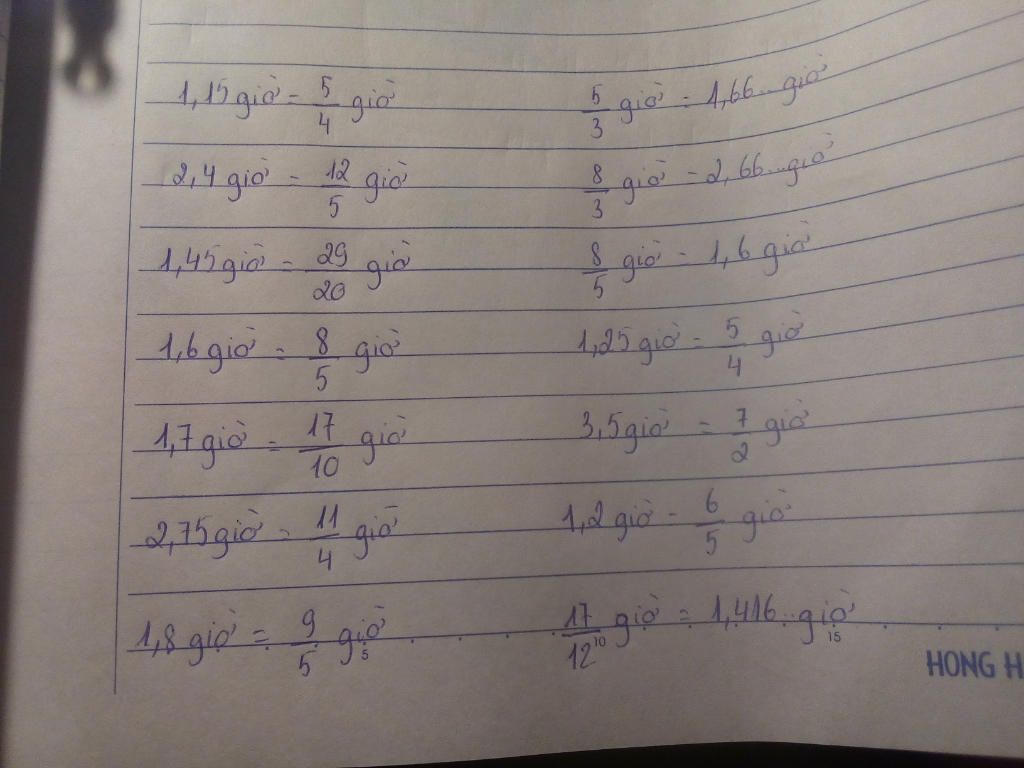 1,15 giờ = 5/4 giờ
5/3 giờ = 1,66... giờ
2,4 giờ = 12/5 giờ
8/3 giờ = 2,66... giờ
1,45 giờ = 29/20 giờ
8/5 giờ = 1,6 giờ
1,6 giờ = 8/5 giờ
1,25 giờ = 5/4 giờ
1,7 giờ = 17/10 giờ
3,5 giờ = 7/2 giờ
2,75 giờ = 11/4 giờ
1,2 giờ = 6/5 giờ
1,8 giờ = 9/5 giờ
17/12 giờ = 1,416... giờ
5 10 15
HONG H